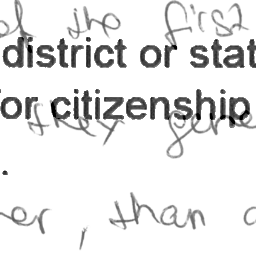 of the first
district or stat
or citizenship
they gene
.
er, than